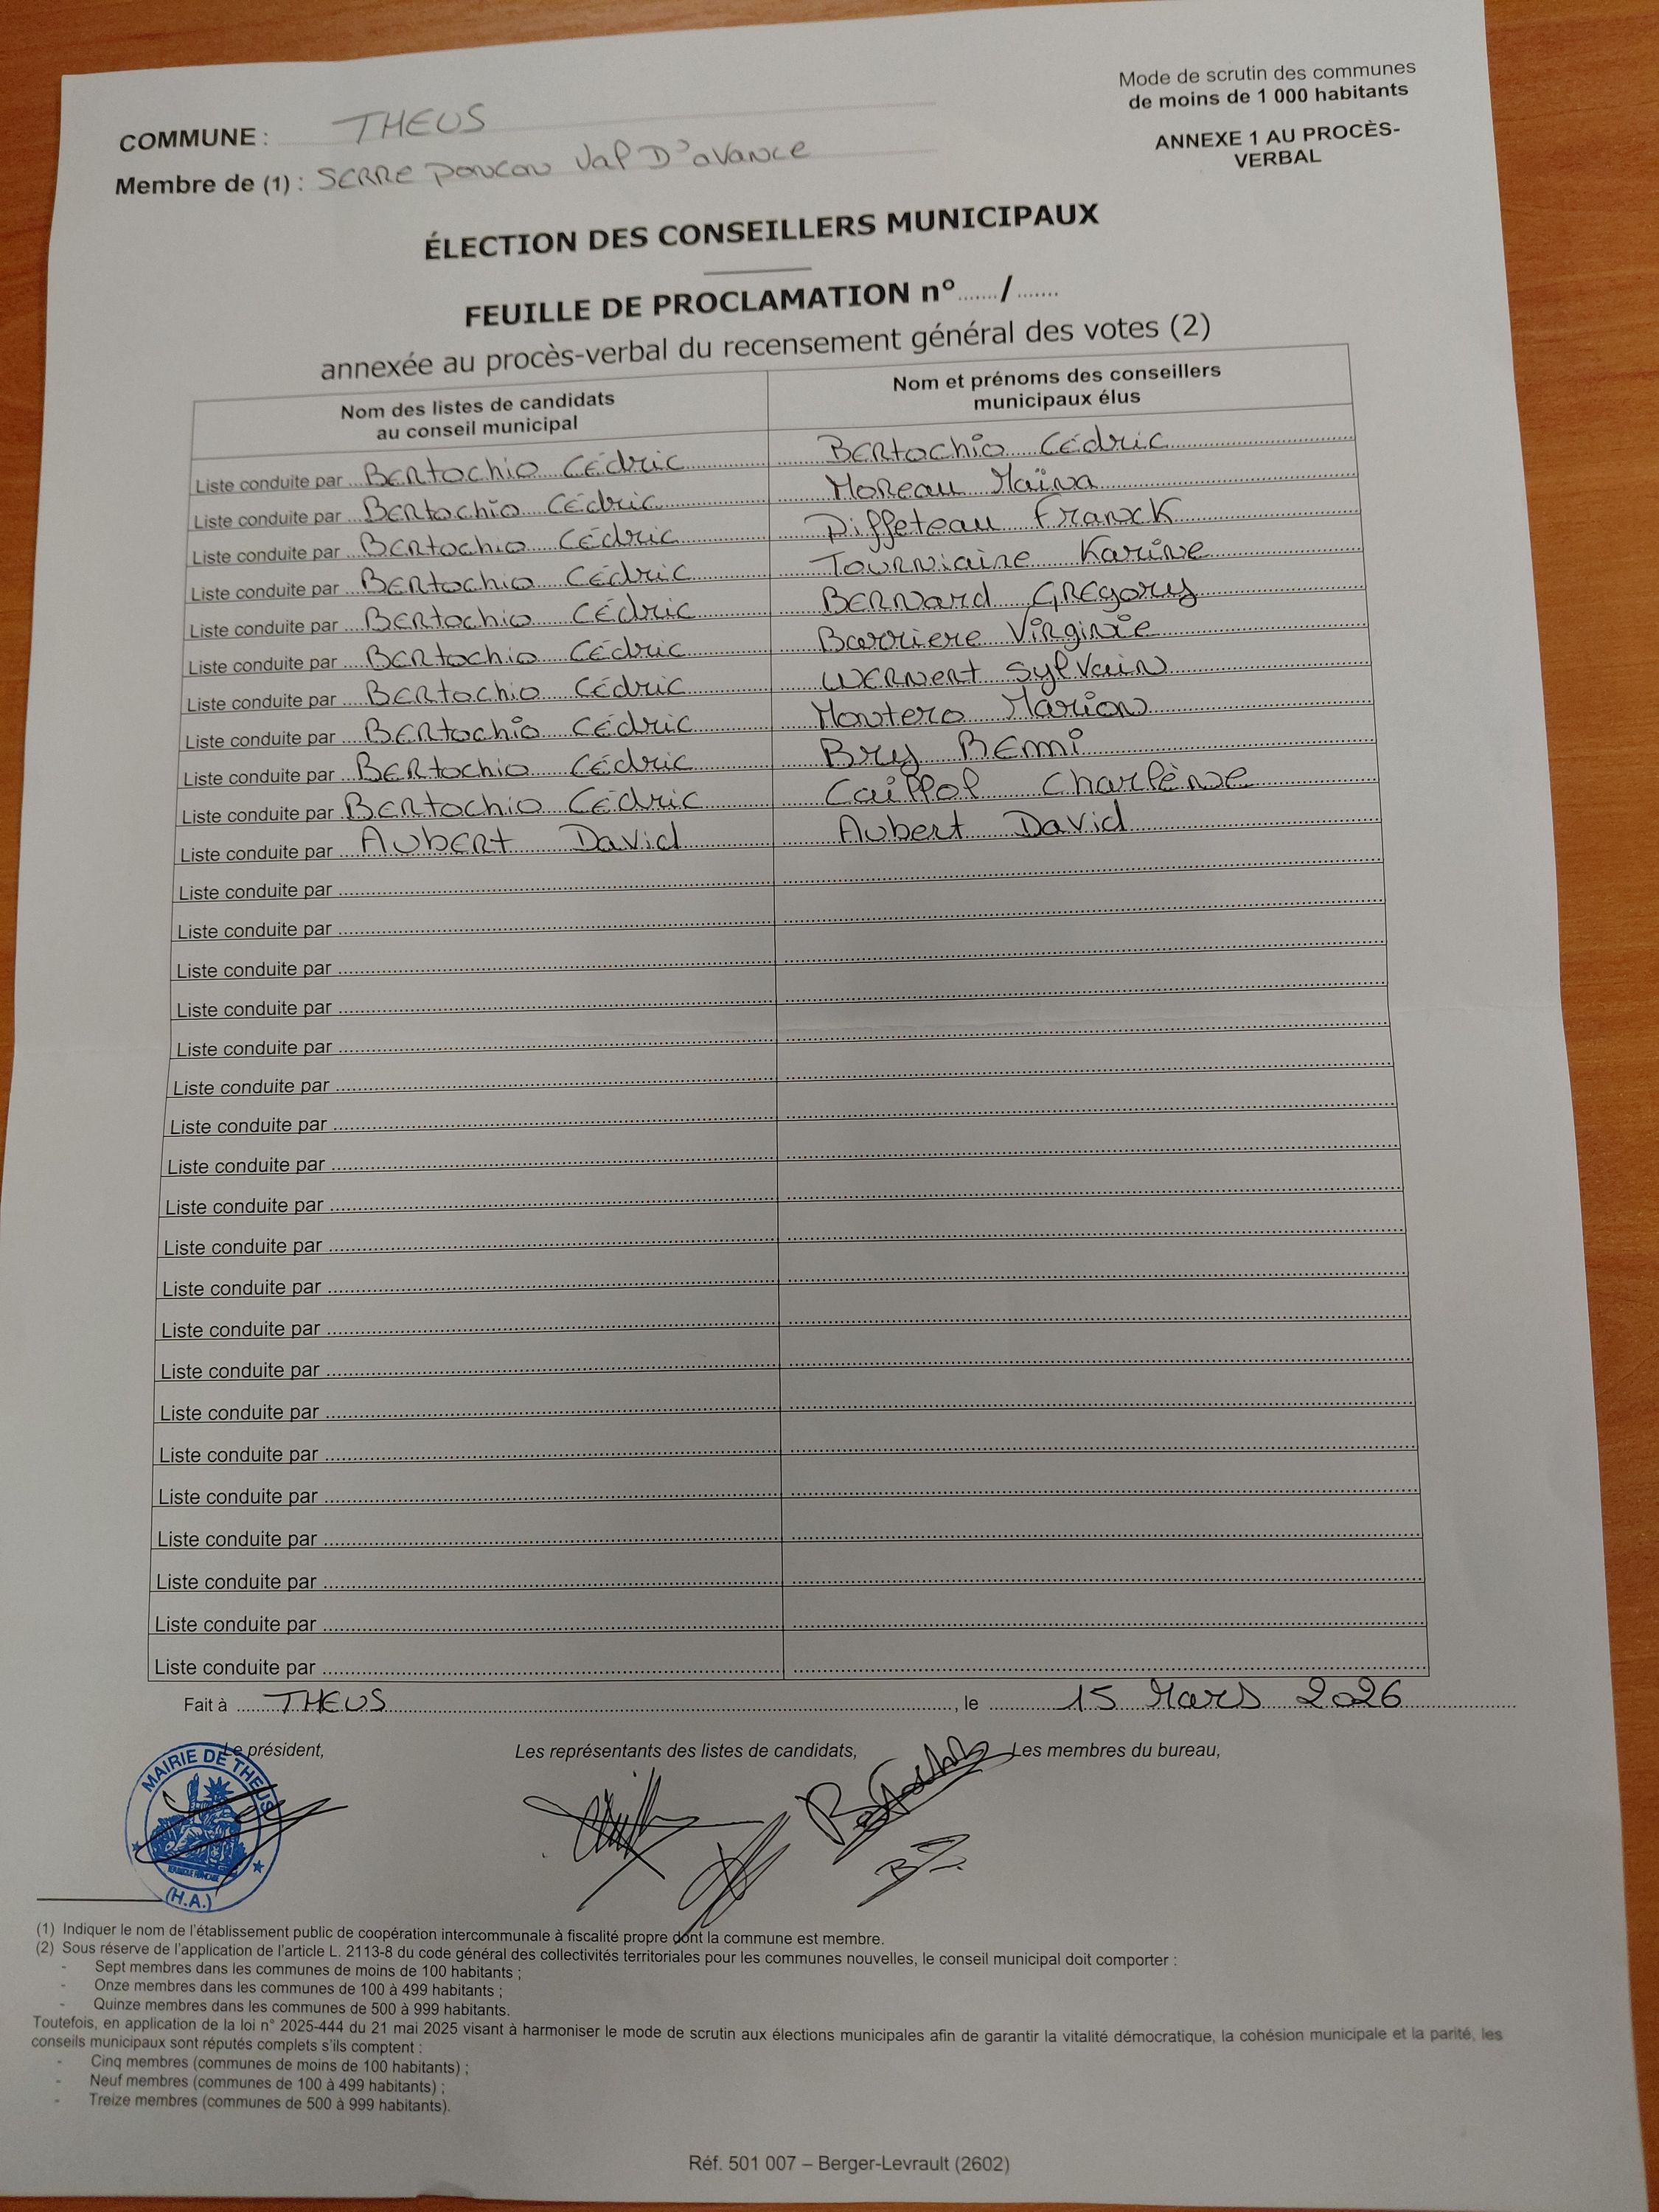 Mode de scrutin des communes
de moins de 1 000 habitants
ANNEXE 1 AU PROCÈS-
VERBAL
COMMUNE : THEUS
Membre de (1) : SERRE PONCON Val D'avance
ÉLECTION DES CONSEILLERS MUNICIPAUX
FEUILLE DE PROCLAMATION n°....... / .......
annexée au procès-verbal du recensement général des votes (2)
Nom des listes de candidats
au conseil municipal
Nom et prénoms des conseillers
municipaux élus
Liste conduite par Bertochio Cédric Bertochio Cédric
Liste conduite par Bertochio Cédric Moreau Maïna
Liste conduite par Bertochio Cédric Piffeteau Franck
Liste conduite par Bertochio Cédric Tourniaire Karine
Liste conduite par Bertochio Cédric Bernard Gregory
Liste conduite par Bertochio Cédric Barriere Virginie
Liste conduite par Bertochio Cédric Wernert Sylvain
Liste conduite par Bertochio Cédric Montero Marion
Liste conduite par Bertochio Cédric Bry Remi
Liste conduite par Bertochio Cédric Caillol Charlène
Liste conduite par Aubert David Aubert David
Liste conduite par
Liste conduite par
Liste conduite par
Liste conduite par
Liste conduite par
Liste conduite par
Liste conduite par
Liste conduite par
Liste conduite par
Liste conduite par
Liste conduite par
Liste conduite par
Liste conduite par
Liste conduite par
Liste conduite par
Liste conduite par
Liste conduite par
Liste conduite par
Liste conduite par
Liste conduite par
Fait à THEUS, le 15 Mars 2026
Le président,
Les représentants des listes de candidats,
Les membres du bureau,
MAIRIE DE THEUS
RÉPUBLIQUE FRANÇAISE
(H.A.)
(1) Indiquer le nom de l'établissement public de coopération intercommunale à fiscalité propre dont la commune est membre.
(2) Sous réserve de l'application de l'article L. 2113-8 du code général des collectivités territoriales pour les communes nouvelles, le conseil municipal doit comporter :
- Sept membres dans les communes de moins de 100 habitants ;
- Onze membres dans les communes de 100 à 499 habitants ;
- Quinze membres dans les communes de 500 à 999 habitants.
Toutefois, en application de la loi n° 2025-444 du 21 mai 2025 visant à harmoniser le mode de scrutin aux élections municipales afin de garantir la vitalité démocratique, la cohésion municipale et la parité, les
conseils municipaux sont réputés complets s'ils comptent :
- Cinq membres (communes de moins de 100 habitants) ;
- Neuf membres (communes de 100 à 499 habitants) ;
- Treize membres (communes de 500 à 999 habitants).
Réf. 501 007 – Berger-Levrault (2602)